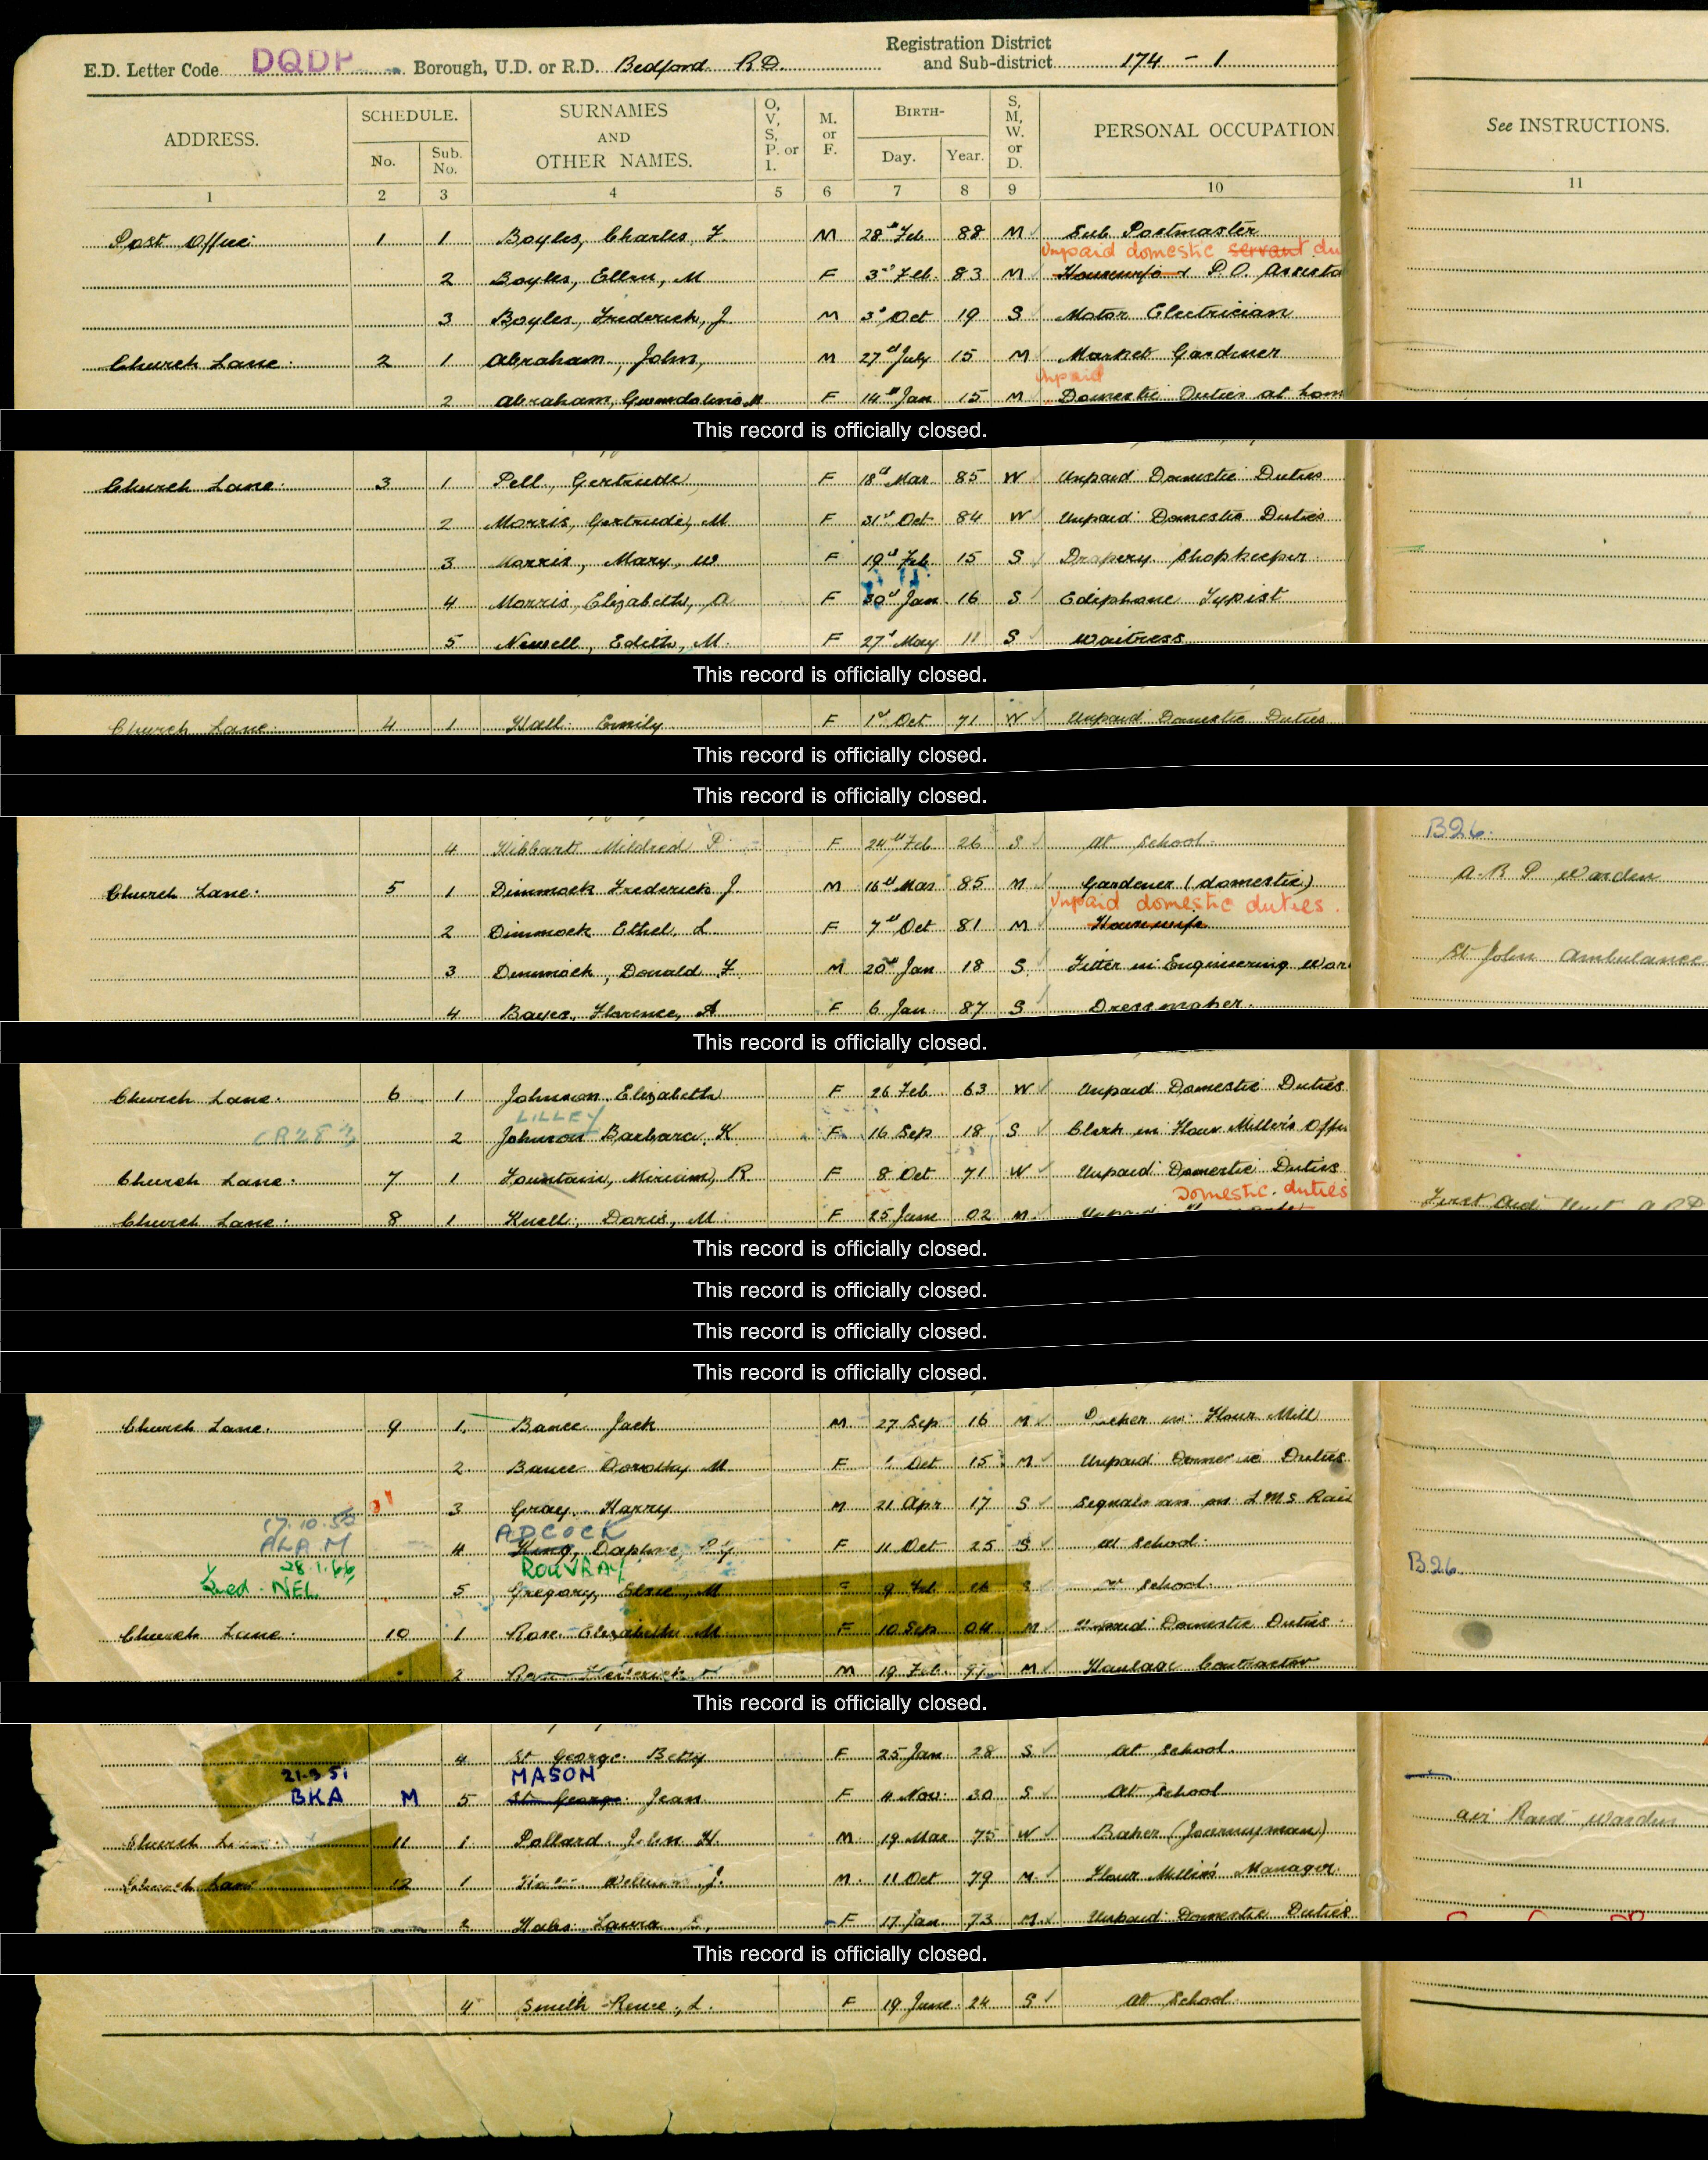 E.D. Letter Code DQDP Borough, U.D. or R.D. Bedford R.D. Registration District and Sub-district 174 - 1
ADDRESS. SCHEDULE. No. Sub. No. SURNAMES AND OTHER NAMES. O, V, S, P. or I. M. or F. BIRTH- Day. Year. S, M, W. or D. PERSONAL OCCUPATION See INSTRUCTIONS.
1 2 3 4 5 6 7 8 9 10 11
Post Office 1 1 Boyles, Charles, F. M 28th Feb 88 M Sub Postmaster
Unpaid domestic servant du
2 Boyles, Ellen, M F 3rd Feb. 83 M Housewife & P.O. Assista
3 Boyles, Frederick, J M 3rd Oct 19 S Motor Electrician
Church Lane. 2 1 Abraham, John, M 27th July 15 M Market Gardener
Unpaid
2 Abraham, Gwendoline M F 14th Jan 15 M Domestic Duties at hom
This record is officially closed.
Church Lane. 3 1 Pell, Gertrude F 18th Mar 85 W Unpaid Domestic Duties
2 Morris, Gertrude, M F 31st Oct 84 W Unpaid Domestic Duties
3 Morris, Mary, W F 19th Feb 15 S Drapery Shopkeeper
4 Morris, Elizabeth, A F 30th Jan 16 S Ediphone Typist
5 Newell, Edith, M. F 27th May 11 S Waitress
This record is officially closed.
Church Lane. 4 1 Hall Emily F 1st Oct 71 W Unpaid Domestic Duties
This record is officially closed.
This record is officially closed.
4 Hibbart Mildred P. F 24th Feb 26 S At School. B26.
Church Lane. 5 1 Dimmock Frederick J M 16th Mar 85 M Gardener (domestic) A.R.P Warden
Unpaid domestic duties.
2 Dimmock Ethel, L F 7th Oct 81 M Housewife
3 Dimmock, Donald F M 20th Jan 18 S Fitter in Engineering Wor St John Ambulance
4 Bayes, Florence, A F 6 Jan 87 S Dressmaker.
This record is officially closed.
Church Lane. 6 1 Johnson Elizabeth F 26 Feb 63 W Unpaid Domestic Duties
LILLEY
2 Johnson Barbara, K F 16 Sep 18 S Clerk in Flour Miller's Offi
Church Lane. 7 1 Fountain, Miriam, R F 8 Oct 71 W Unpaid Domestic Duties
Domestic duties
Church Lane. 8 1 Knell, Doris, M. F 25 June 02 M. Unpaid First Aid
This record is officially closed.
This record is officially closed.
This record is officially closed.
This record is officially closed.
Church Lane. 9 1. Bance Jack M 27 Sep 16 M Packer in Flour Mill
2. Bance Dorothy M F 1 Oct 15 M Unpaid Domestic Duties
3 Gray, Harry M 21 Apr 17 S Signalman on LMS Rail
17.10.55 ADCOCK
4 King, Daphne F 11 Oct 25 S At School.
28.1.66 ROUVRAY B26.
NEL 5 Gregory, Elsie, M F 9 Feb S School.
Church Lane. 10 1 Rose Elizabeth M F 10 Sep 04 M Unpaid Domestic Duties
2 M 19 Feb. M Haulage Contractor
This record is officially closed.
4 St George Betty F 25 Jan 28 S At School.
21.3.51 MASON
BKA M 5 St George Jean F 4 Nov. 30 S At School
Church 11 1 Pollard John H. M. 19 Mar 75 W Baker (Journeyman) Air Raid Warden
Church Lane 12 1 J. M. 11 Oct 79 M. Flour Miller's Manager
2 Laura E, F 17 Jan 73 M. Unpaid Domestic Duties
This record is officially closed.
4 Smith Renee, L. F 19 June 24 S At School.